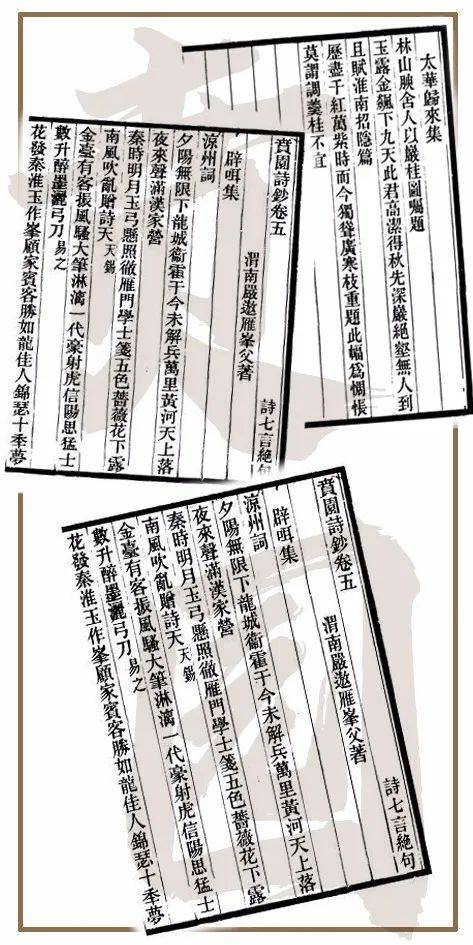 太華歸來集
林山腴舍人以巖桂圖囑題
玉露金飆下九天此君高潔得秋先深巖絕壑無人到
且賦淮南招隱篇
歷盡千紅萬紫時而今獨聳廣寒枝重題此幅爲惆悵
莫謂調羹桂不宜
賁園詩鈔卷五 詩七言絕句
渭南嚴遨雁峯父著
辟咡集
涼州詞
夕陽無限下龍城衞霍于今未解兵萬里黃河天上落
夜來聲滿漢家營
秦時明月玉弓懸照徹雁門學士箋五色薔薇花下露
南風吹亂贈詩天 天錫
金臺有客振風騷大筆淋漓一代豪射虎信陽思猛士
數升醉墨灑弓刀 易之
花發秦淮玉作峯顧家賓客勝如龍佳人錦瑟十季夢
賁園詩鈔卷五 詩七言絕句
渭南嚴遨雁峯父著
辟咡集
涼州詞
夕陽無限下龍城衞霍于今未解兵萬里黃河天上落
夜來聲滿漢家營
秦時明月玉弓懸照徹雁門學士箋五色薔薇花下露
南風吹亂贈詩天 天錫
金臺有客振風騷大筆淋漓一代豪射虎信陽思猛士
數升醉墨灑弓刀 易之
花發秦淮玉作峯顧家賓客勝如龍佳人錦瑟十季夢